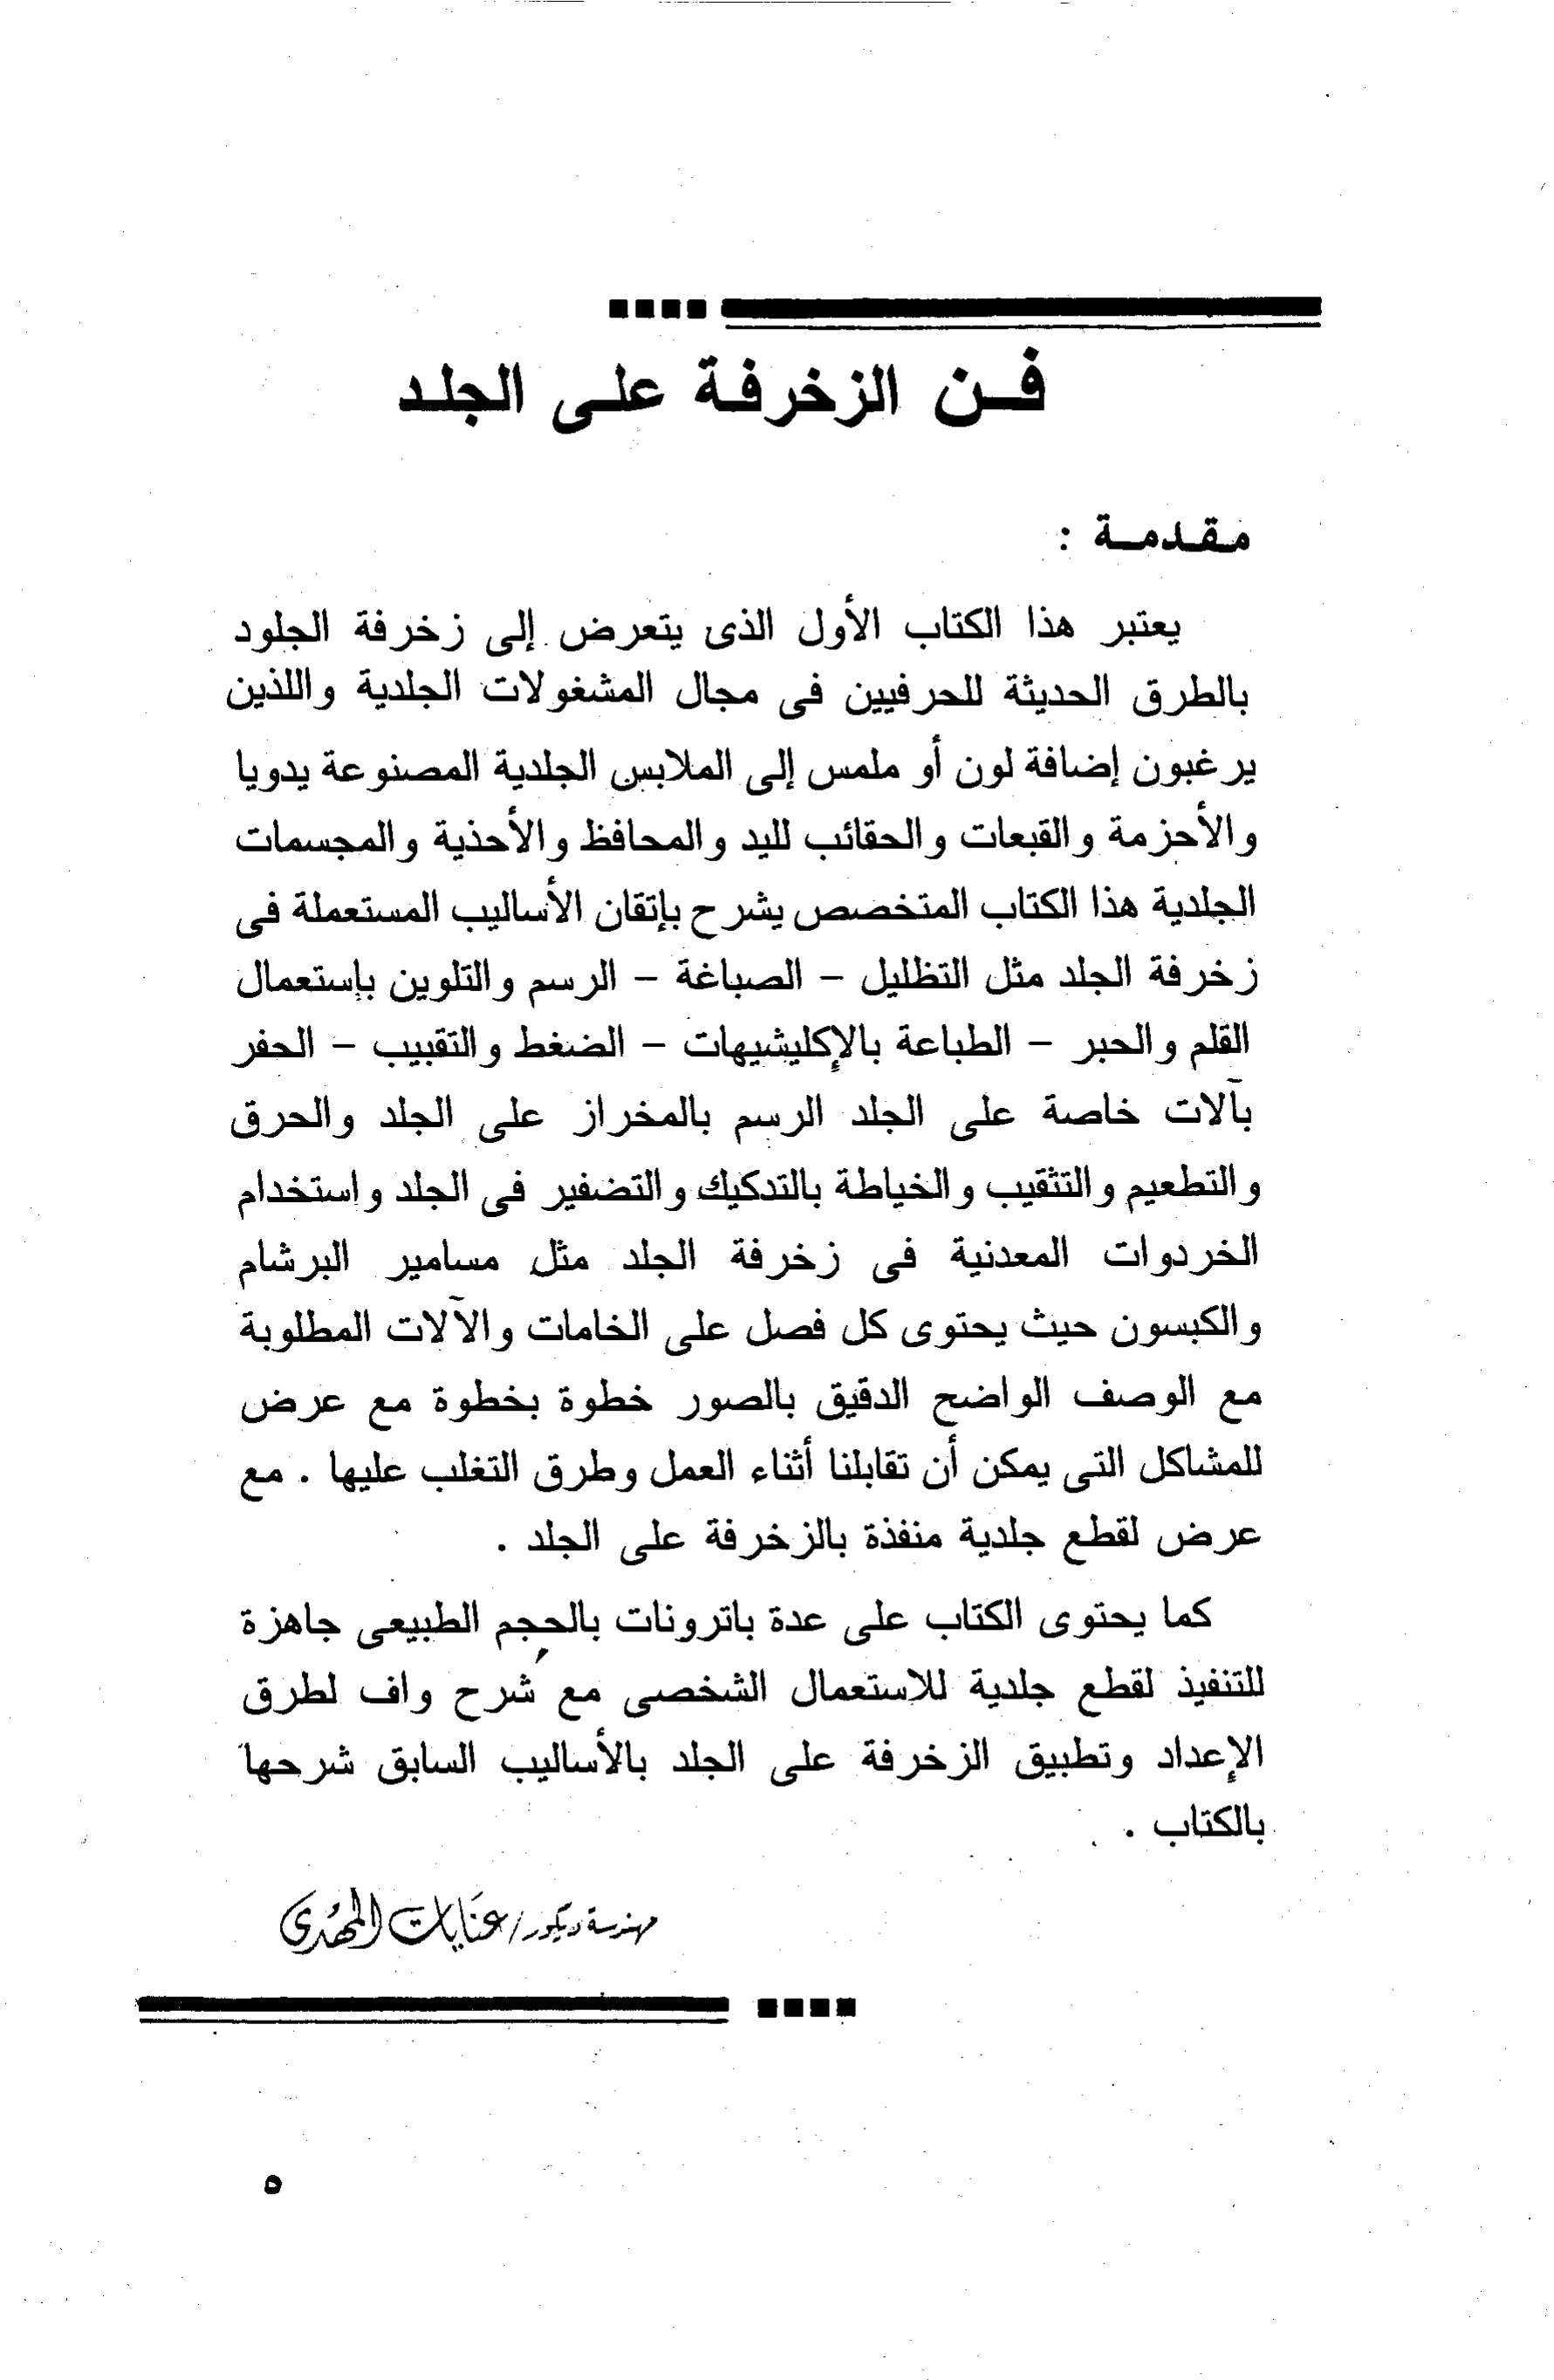 فن الزخرفة على الجلد
مقدمة :
يعتبر هذا الكتاب الأول الذى يتعرض إلى زخرفة الجلود
بالطرق الحديثة للحرفيين فى مجال المشغولات الجلدية واللذين
يرغبون إضافة لون أو ملمس إلى الملابس الجلدية المصنوعة يدويا
والأحزمة والقبعات والحقائب لليد والمحافظ والأحذية والمجسمات
الجلدية هذا الكتاب المتخصص يشرح بإتقان الأساليب المستعملة فى
زخرفة الجلد مثل التظليل – الصباغة – الرسم والتلوين بإستعمال
القلم والحبر – الطباعة بالإكليشيهات – الضغط والتقبيب – الحفر
بآلات خاصة على الجلد الرسم بالمخراز على الجلد والحرق
والتطعيم والتثقيب والخياطة بالتدكيك والتضفير فى الجلد واستخدام
الخردوات المعدنية فى زخرفة الجلد مثل مسامير البرشام
والكبسون حيث يحتوى كل فصل على الخامات والآلات المطلوبة
مع الوصف الواضح الدقيق بالصور خطوة بخطوة مع عرض
للمشاكل التى يمكن أن تقابلنا أثناء العمل وطرق التغلب عليها . مع
عرض لقطع جلدية منفذة بالزخرفة على الجلد .
كما يحتوى الكتاب على عدة باترونات بالحجم الطبيعى جاهزة
للتنفيذ لقطع جلدية للاستعمال الشخصى مع شرح واف لطرق
الإعداد وتطبيق الزخرفة على الجلد بالأساليب السابق شرحها
بالكتاب .
مهندسة ديكور / عنايات المهدى
٥